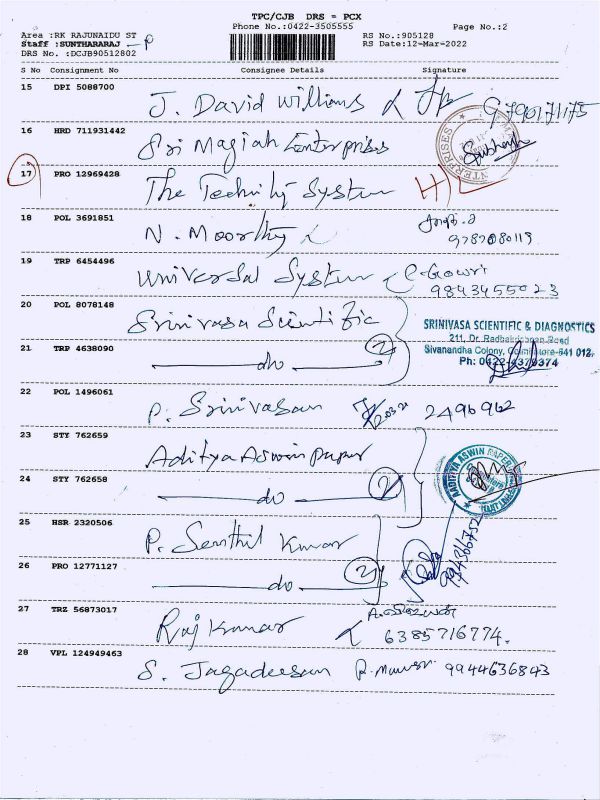 TPC/CJB DRS = PCX
Phone No.:0422-3505555 Page No.:2
Area :RK RAJUNAIDU ST RS No.:905128
Staff :SUNTHARARAJ - P RS Date:12-Mar-2022
DRS No. :DCJB90512802
S No Consignment No Consignee Details Signature
15 DPI 5088700 J. David Williams 9790171175
16 HRD 711931442 Sri Magiah Enterprises
ENTERPRISES
17 PRO 12969428 The Techniti System
18 POL 3691851 N. Moorthy
9787080119
19 TRP 6454496 Universal System C. Gowri
9843455023
20 POL 8078148 Srinivasa Scientific
SRINIVASA SCIENTIFIC & DIAGNOSTICS
211, Dr. Radhakrishnan Road
Sivanandha Colony, Coimbatore-641 012.
Ph: 0422-4370374
21 TRP 4638090 do 2
22 POL 1496061 P. Srinivasan 2496962
23 STY 762659 Aditya Aswin paper
AADITYA ASWIN PAPER
24 STY 762658 do 2
25 HSR 2320506 P. Senthil Kumar
26 PRO 12771127 do 2
27 TRZ 56873017 Raj Kumar
6385716774.
28 VPL 124949463 S. Jagadeesan 9944636843